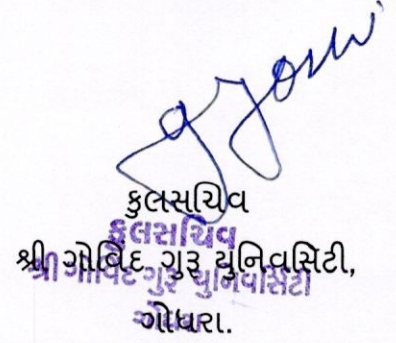 કુલસચિવ
કુલસચિવ
શ્રી ગોવિંદ ગુરૂ યુનિવર્સિટી,
શ્રી ગોવિંદ ગુરૂ યુનિવર્સિટી
ગોધરા.